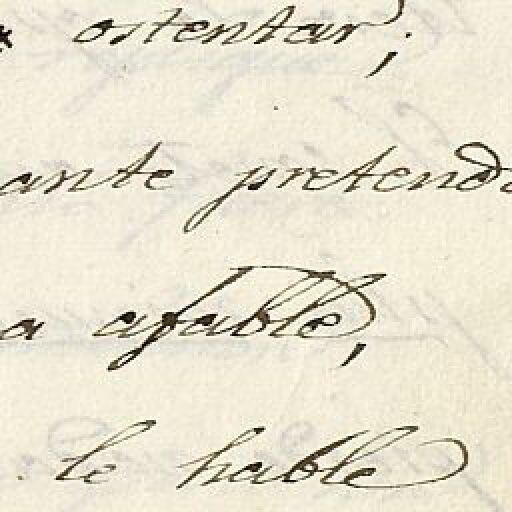 ostentar;
ante pretend
a afable,
le hable